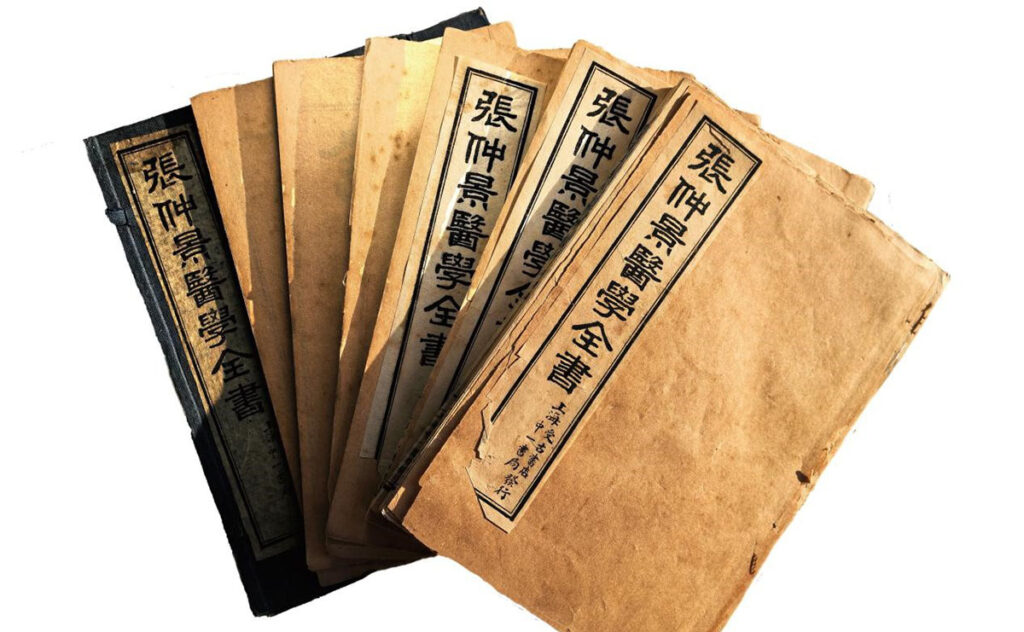 張仲景醫學全書
張仲景醫學全書
張仲景醫學全
張仲景醫學全書
上海受古書店
中一書局發行